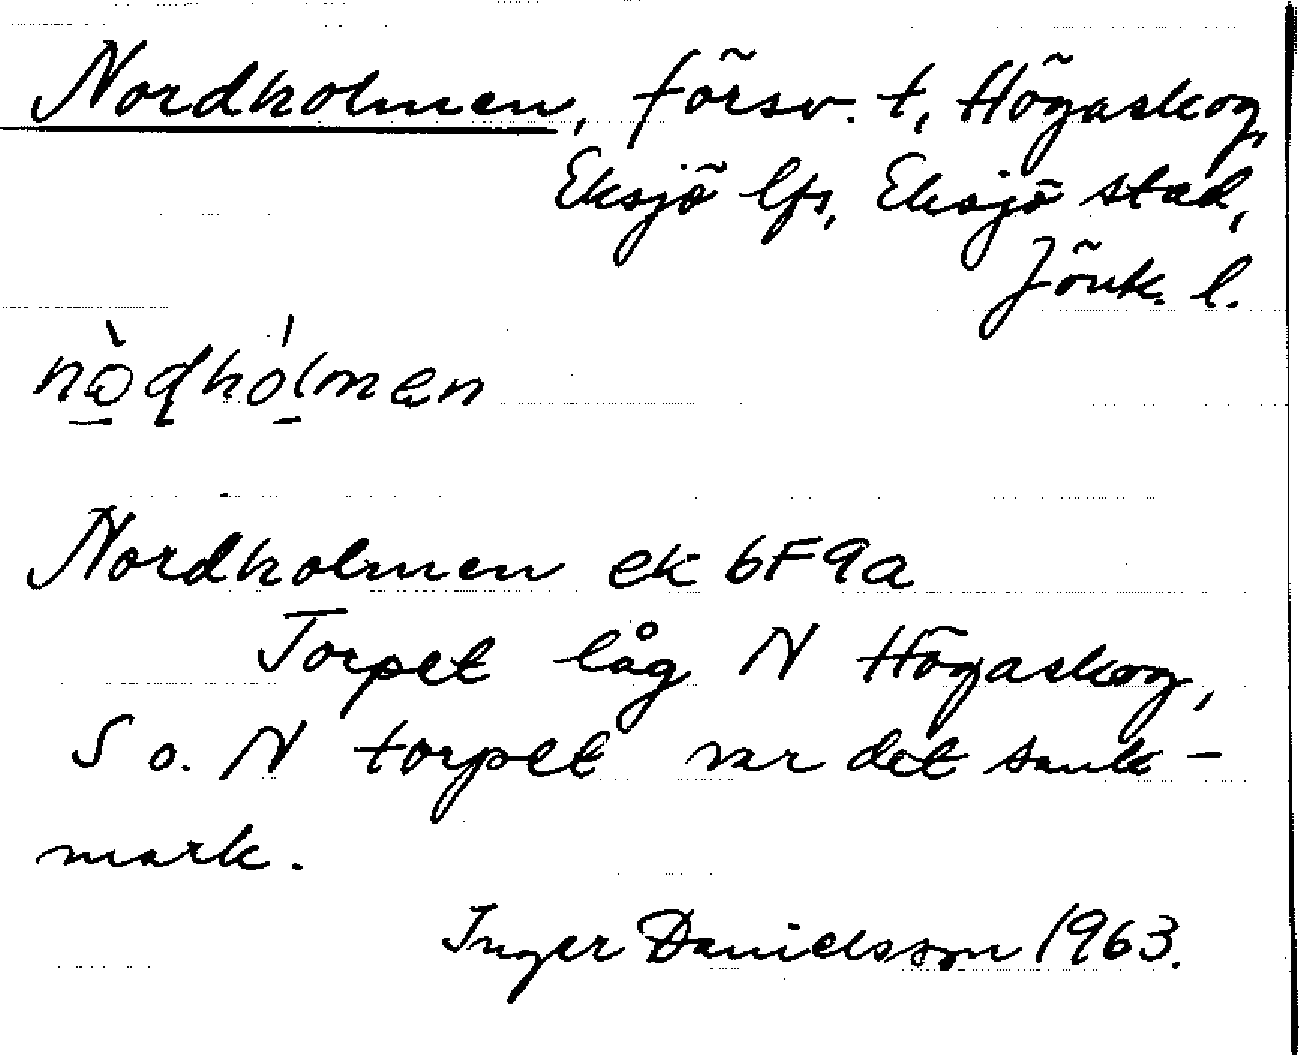 Nordholmen, försv. t, Högaskog,
Eksjö lfs, Eksjö stad,
Jönk. l.
nòdhólmen
Nordholmen ek 6F9a
Torpet låg N Högaskog,
S o. N torpet var det sank-
mark.
Inger Danielsson 1963.